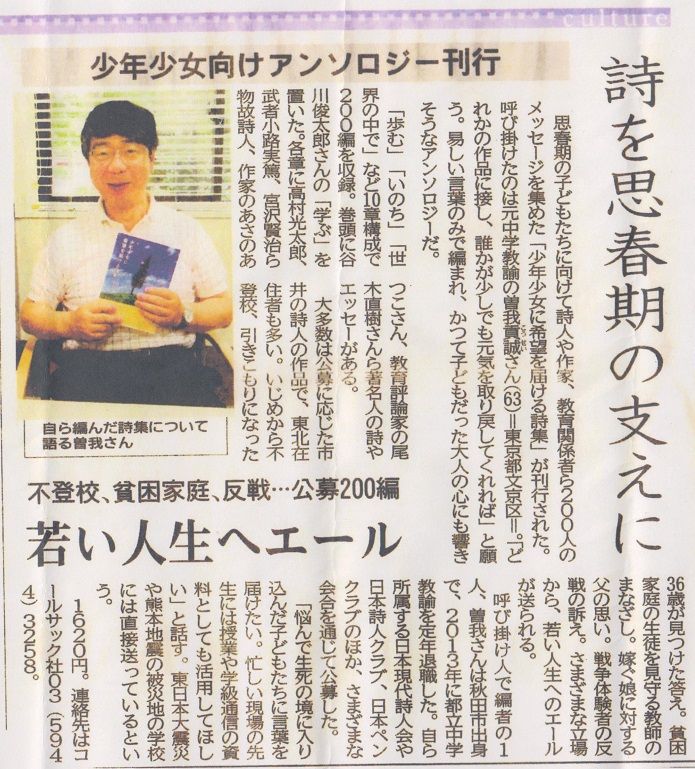 culture
少年少女向けアンソロジー刊行
詩を思春期の支えに
思春期の子どもたちに向けて詩人や作家、教育関係者ら200人の
メッセージを集めた「少年少女に希望を届ける詩集」が刊行された。
呼び掛けたのは元中学教諭の曽我貢誠さん(63)=東京都文京区=。「ど
こうせい
れかの作品に接し、誰かが少しでも元気を取り戻してくれれば」と願
う。易しい言葉のみで編まれ、かつて子どもだった大人の心にも響き
そうなアンソロジーだ。
「歩む」「いのち」「世
界の中で」など10章構成で
200編を収録。巻頭に谷
川俊太郎さんの「学ぶ」を
置いた。各章に高村光太郎、
武者小路実篤、宮沢賢治ら
物故詩人、作家のあさのあ
つこさん、教育評論家の尾
木直樹さんら著名人の詩や
エッセーがある。
大多数は公募に応じた市
井の詩人の作品で、東北在
住者も多い。いじめから不
登校、引きこもりになった
自ら編んだ詩集について
語る曽我さん
不登校、貧困家庭、反戦…公募200編
若い人生へエール
36歳が見つけた答え。貧困
家庭の生徒を見守る教師の
まなざし。嫁ぐ娘に対する
父の思い。戦争体験者の反
戦の訴え。さまざまな立場
から、若い人生へのエール
が送られる。
呼び掛け人で編者の1
人、曽我さんは秋田市出身
で、2013年に都立中学
教諭を定年退職した。自ら
所属する日本現代詩人会や
日本詩人クラブ、日本ペン
クラブのほか、さまざまな
会合を通じて公募した。
「悩んで生死の境に入り
込んだ子どもたちに言葉を
届けたい。忙しい現場の先
生には授業や学級通信の資
料としても活用してほし
い」と話す。東日本大震災
や熊本地震の被災地の学校
には直接送っているとい
う。
1620円。連絡先はコ
ールサック社03(594
4)3258。